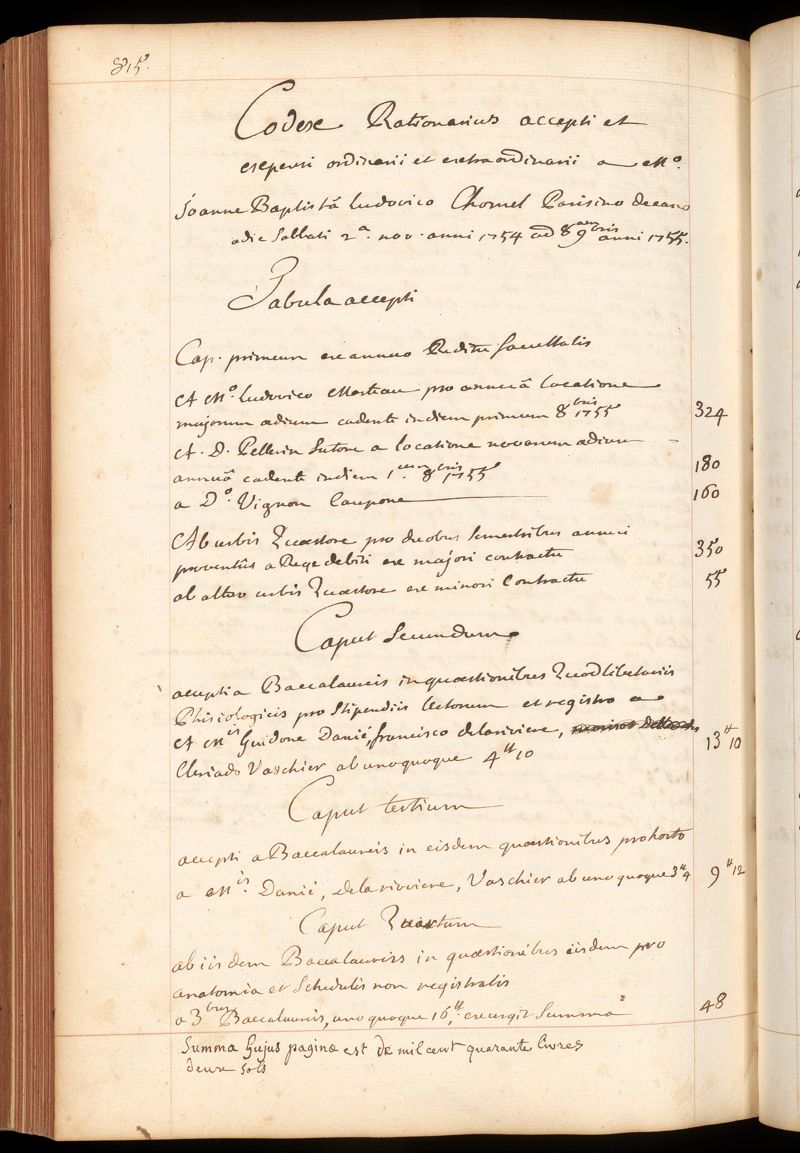 815.
Codex Rationarius accepti et
expensi ordinarii et extraordinarii a M°.
Joanne Baptistâ Ludovico Chomel Parisino decano
a die Sabbati 2ª. nov. anni 1754 ad 8am 9bris anni 1755.
Tabula accepti
Cap. primum ex annuo Reditu
A M°. Ludovico pro annuâ locatione
majorum aedium cadente in diem primum 8bris 1755 324
A. D. Pellerin sutore a locatione novarum aedium
annuâ cadente in diem 1um. 8bris 1755 180
a D°. Vignon Caupone 160
Ab urbis Quaestore pro duobus semestribus annui
proventûs a Rege debiti ex majori contractu 350
ab altero urbis Quaestore ex minori Contractu 55
Caput Secundum
accepti a Baccalaureis in quaestionibus Quodlibetariis
Phisiologicis pro Stipendiis lectorum et registro a
A Mris Guidone Danié, francisco delariviere,
Cleriado Vaschier ab unoquoque 4tt 10 13tt 10
Caput tertium
accepti a Baccalaureis in eisdem quaestionibus pro horto
a Mris. Danié, delariviere, Vaschier ab unoquoque 3tt 4 9tt 12
Caput Quartum
ab iisdem Baccalaureis in quaestionibus iisdem pro
anatomia et Schedulis non registratis
a 3bus Baccalaureis, unoquoque 16tt, exurgit Summa 48
Summa hujus paginae est de mil cent quarante livres
deux sols